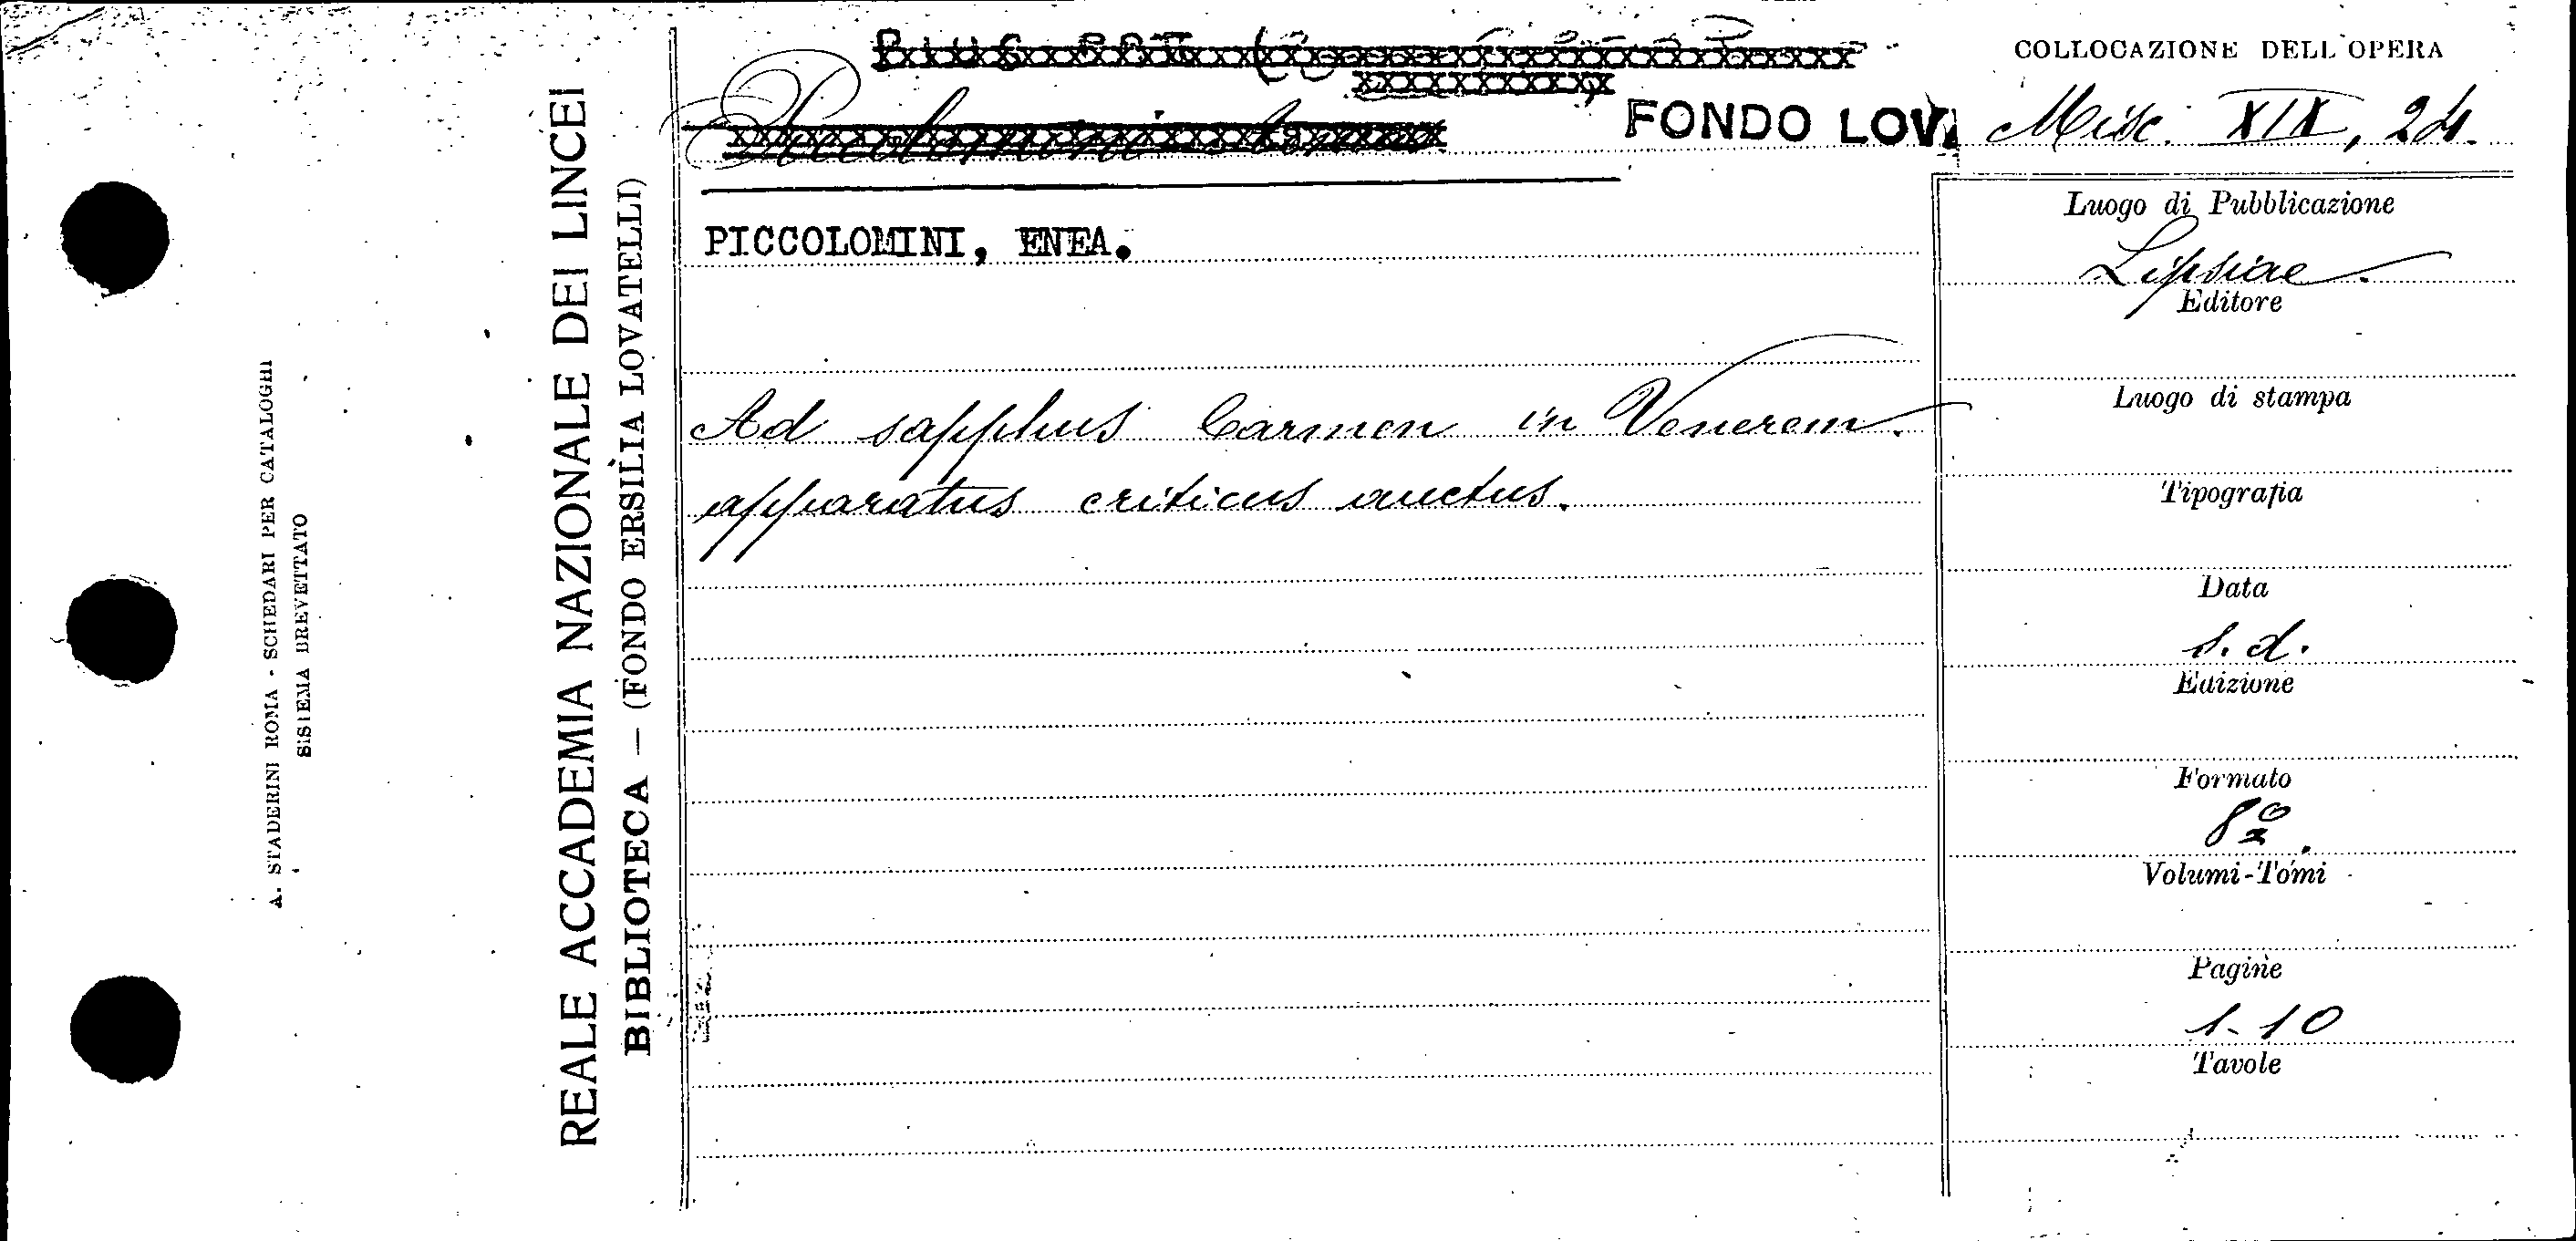 A. STADERINI ROMA - SCHEDARI PER CATALOGHI
SISTEMA BREVETTATO
REALE ACCADEMIA NAZIONALE DEI LINCEI
BIBLIOTECA — (FONDO ERSILIA LOVATELLI)
FONDO LOV.
PICCOLOMINI, ENEA.
Ad sapphus Carmen in Venerem
apparatus criticus auctus.
COLLOCAZIONE DELL'OPERA
Misc. XIX, 24.
Luogo di Pubblicazione
Lipsiae.
Editore
Luogo di stampa
Tipografia
Data
s. d.
Edizione
Formato
8º
Volumi-Tomi
Pagine
1-10
Tavole